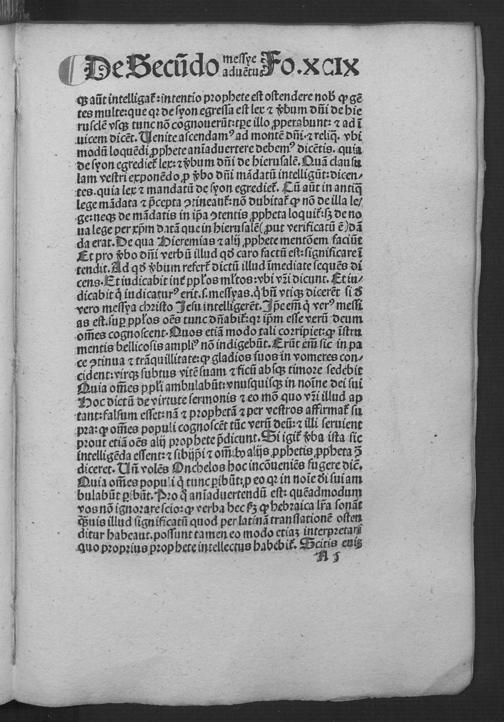 De Secūdo messye advētu Fo.XCIX
ꝙ aūt intelligat̄: intentio prophete est ostendere nob̄ ꝙ gē
tes multe: que qr̄ de syon egressa est lex ⁊ v̄bum dn̄i de hie
ruslēm vsqꝫ tunc nō cognouerūt: tp̄e illo ꝓperabunt: ⁊ ad ī
uicem dicēt. Uenite ascendamꝰ ad montē dn̄i ⁊ reliq̄. vbi
modū loquēdi ꝓphete aīaduertere debemꝰ dicētis. quia
de syon egrediet̄ lex: ⁊ v̄bum dn̄i de hierusalē. Quā clausu
lam vestri exponēdo ꝓ v̄bo dn̄i mādatū intelligūt: dicen⸗
tes. quia lex ⁊ mandatū de syon egrediet̄. Cū aūt in antiq̄
lege mādata ⁊ p̄cepta ꝯtineant̄: nō dubitat̄ ꝙ nō de illa le⸗
ge: neqꝫ de mādatis in ip̄a ꝯtentis ꝓpheta loquit̄: sꝫ de no
ua lege per xp̄m datā que in hierusalē (ꝓut verificatū ē) dā
da erat. De qua Hieremias ⁊ alij ꝓphete mentōem faciūt
Et pro v̄bo dn̄i verbū illud qd̄ caro factū est: significare ī
tendit. Ad qd̄ v̄bum refert̄ dictū illud īmediate sequēs di
cens. Et iudicabit int̄ ppl̄os ml̄tos: vbi vr̄i dicunt. Et iu⸗
dicabit q̄ iudicaturꝰ erit .s. messyas. q̄ bn̄ vtiqꝫ dicerēt si d̄
vero messya christo Jesu intelligerēt. Ip̄e em̄ q̄ verꝰ messi
as est. sup̄ ppl̄os oēs tunc dn̄abit̄: qr̄ ip̄m esse verū deum
om̄es cognoscent. Quos etiā modo tali corripiet: ꝙ īstru
mentis bellicosis ampliꝰ nō indigebūt. Erūt em̄ sic in pa
ce ꝯtinua ⁊ trāquillitate: ꝙ gladios suos in vomeres con⸗
cident: virqꝫ subtus vitē suam ⁊ ficū absqꝫ timore sedebit
Quia om̄es ppl̄i ambulabūt: vnusquisqꝫ in noīne dei sui
Hoc dictū de virtute sermonis ⁊ eo mō quo vr̄i illud ap
tant: falsum esset: nā ⁊ prophetā ⁊ per vestros affirmat̄ su
pra: ꝙ om̄es populi cognoscēt tūc verū deū: ⁊ illi seruient
prout etiā oēs alij prophete p̄dicunt. Si igit̄ v̄ba ista sic
intelligēda essent: ⁊ sibijp̄i ⁊ om̄ibꝰ alijs ꝓphetis ꝓpheta ꝯ̄
diceret. Un̄ volēs Onchelos hoc incōueniēs fugere dic̄.
Quia om̄es populi q̄ tunc ꝑibūt: ꝓ eo qr̄ in noīe dī sui am
bulabūt ꝑibūt. Pro q̄ aīaduertendū est: quēadmodum
vos nō ignorare scio: ꝙ verba hec sꝫ ꝙ hebraica lr̄a sonāt
q̄uis illud significatū quod per latinā translationē osten
ditur habeant. possunt tamen eo modo etiaꝫ interpretari
quo proprius prophete intellectus habebit̄. Scitis eniꝫ
N 3